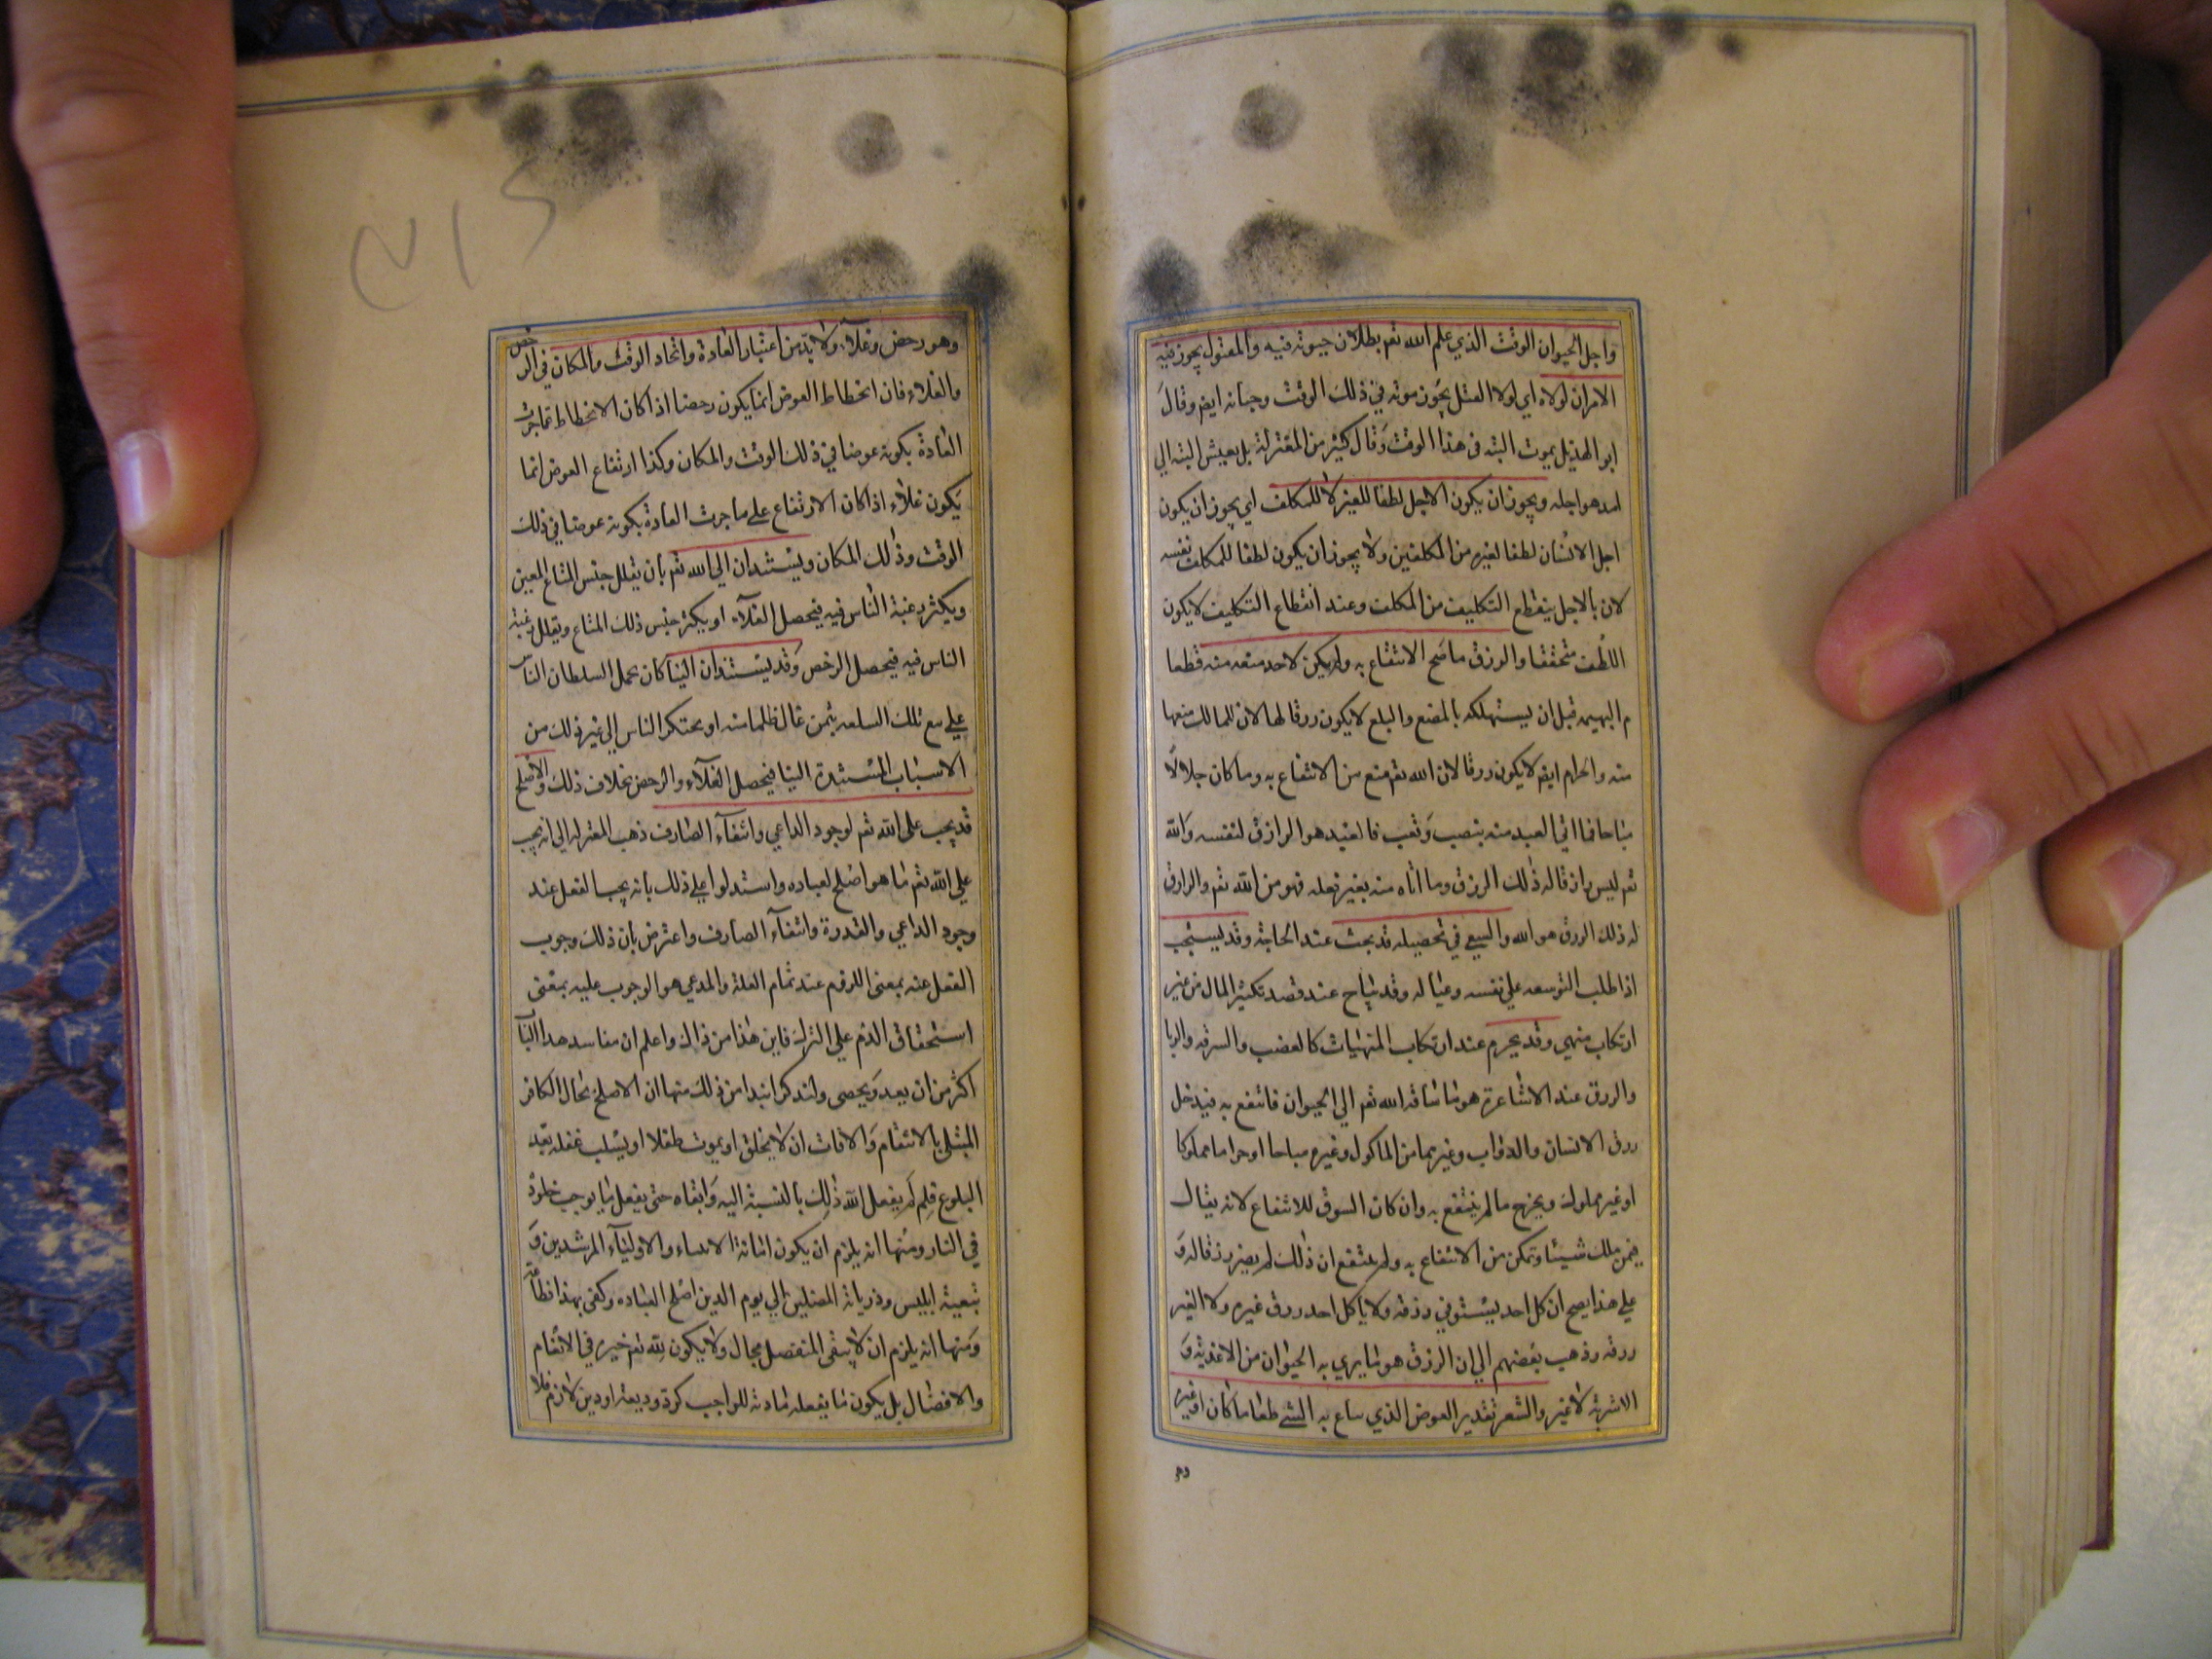 واجل الحيوان الوقت الذي علم الله تعم بطلان حيوته فيه والمقتول يجوز فيه
الامران لولاه اي لولا القتل يجوز موته في ذلك الوقت وحياته ايضم وقال
ابو الهذيل يموت البتة في هذا الوقت وقال كثير من المعتزلة بل يعيش البتة الي
امد هو اجله ويجوز ان يكون الاجل لطفا للغير لا للمكلف اي يجوز ان يكون
اجل الانسان لطفا لغيره من المكلفين ولا يجوز ان يكون لطفا للمكلف نفسه
لان بالاجل ينقطع التكليف من المكلف وعند انقطاع التكليف لا يكون
اللطف متحققا والرزق ما صح الانتفاع به ولم يكن لاحد منعه منه فطعا
م البهيمة قبل ان يستهلكه بالمضغ والبلع لا يكون رزقا لها لان للمالك منعها
منه والحرام ايضم لا يكون رزقا لان الله تعم منع من الانتفاع به وما كان حلالا
مباحا فما اتي العبد منه بنصب وتعب فالعبد هو الرازق لنفسه والله
تعم ليس براز قاله ذلك الرزق وما اتاه منه بغير فعله فهو من الله تعم والرازق
له ذلك الرزق هو الله والسعي في تحصيله قد يجب عند الحاجة وقد يستحب
اذا طلب التوسعه علي نفسه وعياله وقد يباح عند قصد تكثير المال من غير
ارتكاب منهي وقد يحرم عند ارتكاب المنهيات كالغضب والسرقه والربا
والرزق عند الاشاعرة هو ما ساقه الله تعم الي الحيوان فانتفع به فيدخل
رزق الانسان والدواب وغيرهما من الماكول وغيره مباحا او حراما مملوكا
او غير مملوك ويخرج ما لم ينتفع به وان كان السوق للانتفاع لانه يقال
فيمن ملك شيئا وتمكن من الانتفاع به ولم ينتفع ان ذلك لم يصر رزقا له و
علي هذا يصح ان كل احد يستوفي رزقه ولا ياكل احد رزق غيره ولا الغير
رزقه وذهب بعضهم الي ان الرزق هو ما يربي به الحيوان من الاغذية و
الاشربة لا غير والسعر تقدير العوض الذي يباع به الشي طعاما كان او غيره
وهو
وهو رخص وغلاء ولا بد من اعتبار العادة واتحاد الوقت والمكان في الرخص
والغلاء فان انحطاط العوض انما يكون رخصا اذا كان الانحطاط عما جرت
العادة بكونه عوضا في ذلك الوقت والمكان وكذا ارتفاع العوض انما
يكون غلاء اذا كان الارتفاع علي ما جرت العادة بكونه عوضا في ذلك
الوقت وذلك المكان ويستندان الي الله تعم بان يقلل جنس المتاع المعين
ويكثر رغبة الناس فيه فيحصل الغلاء او يكثر جنس ذلك المتاع ويقلل رغبة
الناس فيه فيحصل الرخص وقد يستندان الينا كان يحمل السلطان الناس
علي بيع تلك السلعه بثمن غال ظلما منه او يحتكر الناس الي غير ذلك من
الاسباب المستندة الينا فيحصل الغلاء والرخص بخلاف ذلك والاصلح
قد يجب علي الله تعم لوجود الداعي وانتفاء الصارف ذهب المعتزله الي انه يجب
علي الله تعم ما هو اصلح لعباده واستدلوا علي ذلك بانه يجب الفعل عند
وجود الداعي والقدرة وانتفاء الصارف واعترض بان ذلك وجوب
الفعل عنه بمعني اللزوم عند تمام العلة والمدعي هو الوجوب عليه بمعني
استحقاق الذم علي الترك فاين هذا من ذاك واعلم ان مفاسد هذا
اكثر من ان يعد ويحصي ولنذكر نبذا من ذلك منها ان الاصلح بحال الكافر
المبتلي بالاسقام والافات ان لا يخلق او يموت طفلا او يسلب عقله بعد
البلوغ فلم لم يفعل الله ذلك بالنسبة اليه وابقاه حتي يفعل ما يوجب خلوده
في النار ومنها انه يلزم ان يكون اماتة الانبياء والاولياء المرشدين و
تبقية ابليس وذرياته المضلين الي يوم الدين اصلح لعباده وكفي بهذا فظاعة
ومنها انه يلزم ان لا يبقي للتفضل مجال ولا يكون لله تعم خيرة في الانعام
والافضال بل يكون ما يفعله تادية للواجب كرد وديعة او دين لازم فلا